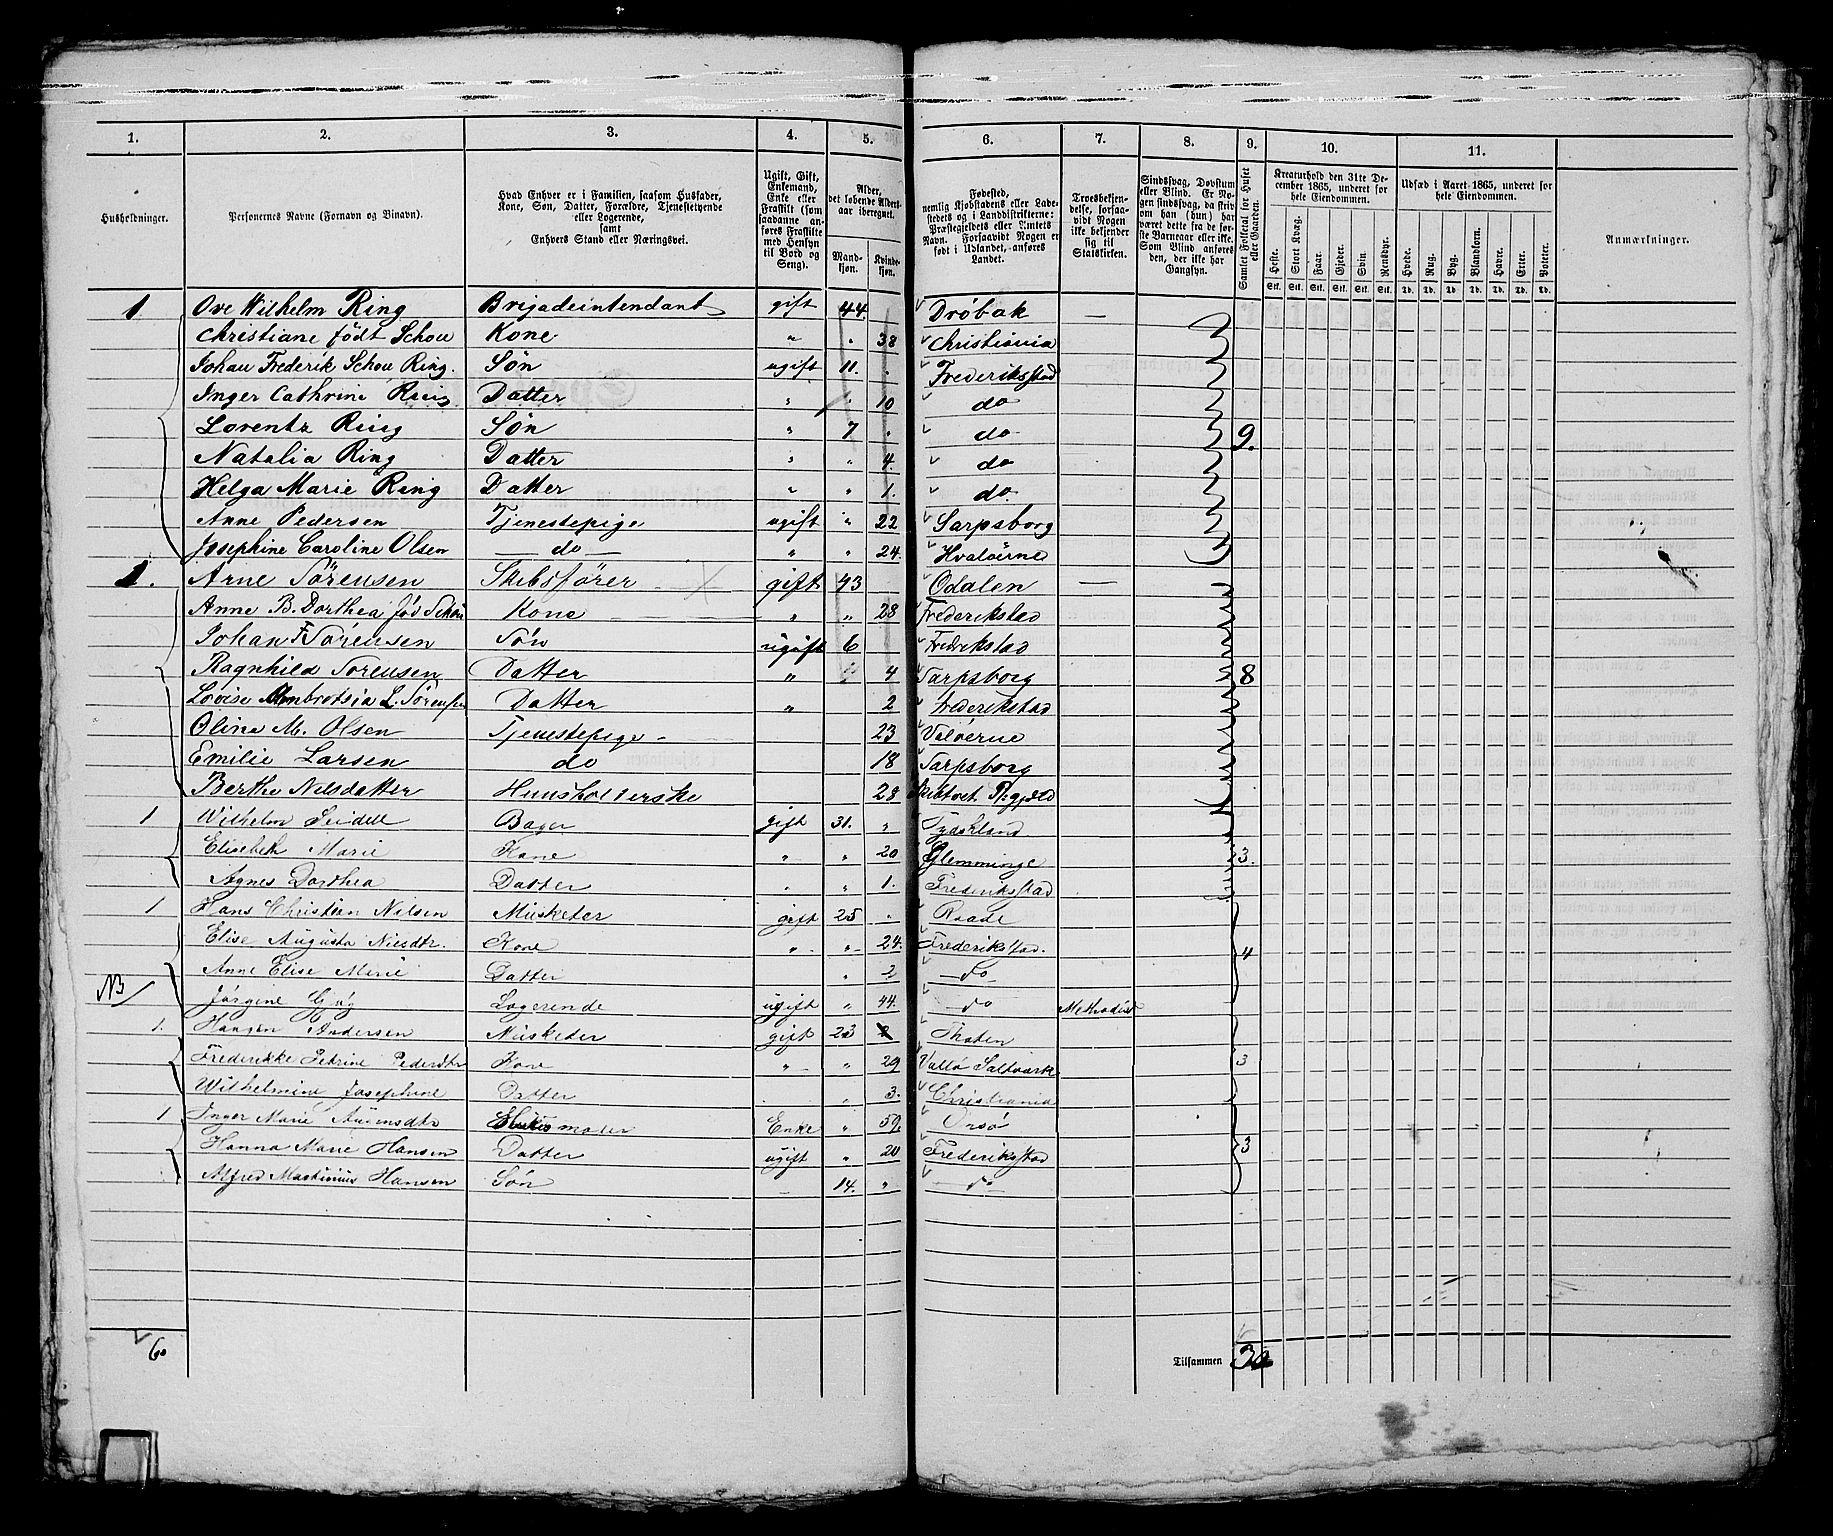 1. 2. 3. 4. 5. 6. 7. 8. 9. 10. 11.
Husholdninger.
Personernes Navne (Fornavn og Binavn).
Hvad Enhver er i Familien, saasom Husfader,
Kone, Søn, Datter, Forældre, Tjenestetyende
eller Logerende,
samt
Enhvers Stand eller Næringsvei.
Ugift, Gift,
Enkemand,
Enke eller
Fraskilt (som
saadanne an-
føres Fraskilte
med Hensyn
til Bord og
Seng).
Alder,
det løbende Alders-
aar iberegnet.
Mand-
kjøn.
Kvinde-
kjøn.
Fødested,
nemlig Kjøbstadens eller Lade-
stedets og i Landdistrikterne:
Præstegjeldets eller Amtets
Navn. Forsaavidt Nogen er
født i Udlandet, anføres
Landet.
Troesbekjen-
delse, forsaa-
vidt Nogen
ikke bekjender
sig til
Statskirken.
Sindssvag, Døvstum
eller Blind. Er No-
gen sindssvag, da skriv
om han (hun) har
været dette fra de før-
ste Barneaar eller ikke.
Som Blind anføres
den, der ikke har
Gangsyn.
Samlet Folketal for Huset
eller Gaarden.
Kreaturhold den 31te De-
cember 1865, underet for
hele Eiendommen.
Heste. Stort Kvæg. Faar. Gjeder. Svin. Rensdyr.
Stk. Stk. Stk. Stk. Stk. Stk.
Udsæd i Aaret 1865, underet for
hele Eiendommen.
Hvede. Rug. Byg. Blandkorn. Havre. Erter. Poteter.
Td. Td. Td. Td. Td. Td. Td.
Anmærkninger.
1 Ove Wilhelm Ring Brigadeintendant gift 44. Drøbak —
Christiane født Schou Kone " " 38 Christiania
Johan Frederik Schou Ring. Søn ugift 11. " Frederiksstad
Inger Cathrine Ring Datter " " 10 do
Lorentz Ring Søn " 7 " do 9.
Natalia Ring Datter " " 4. do
Helga Marie Ring Datter " " 1. do
Anne Pedersen Tjenestepige ugift " 22 Sarpsborg
Josephine Caroline Olsen — do — " " 24. Hvaløerne
1. Arne Sörensen Skibsfører gift 43 Odalen —
Anne B. Dorthea Schou Kone " " 28 Frederikstad
Johan F Sörensen Sön ugift 6 Fredrikstad
Ragnhild Sorensen Datter " " 4 Sarpsborg 8
Lovise L. Sörensen Datter " 2 Frederikstad
Oline M. Olsen Tjenestepige - 23 Valöerne
Emilie Larsen do 18 Sarpsborg
Berthe Nilsdatter Huusholderske 28
1 Wilhelm Seidell Bager gift 31. " Tydskland
Elisebeth Marie Kone " " 20 Glemminge 3.
Agnes Dorthea Datter " " 1. Frederiksstad
1 Hans Christian Nilsen Musketer gift 25 " Raade
Elise Augusta Nilsdtr. Kone " " 24. Frederikstad. 4
Anne Elise Marie Datter " 2 do
NB Jørgine Logerende ugift " 44. do Methodist
1. Andersen Musketer gift 23
Frederikke Petrine Pedersdtr Kone " " 29 Valló Saltværk 3
Wilhelmine Josephine Datter " 3. Christiania
1 Inger Marie moder Enke " 59. Onsö
Hanna Marie Hansen Datter ugift " 20 Frederiksstad 3
Alfred Martinius Hansen Søn - 14. " do
6
Tilsammen 30